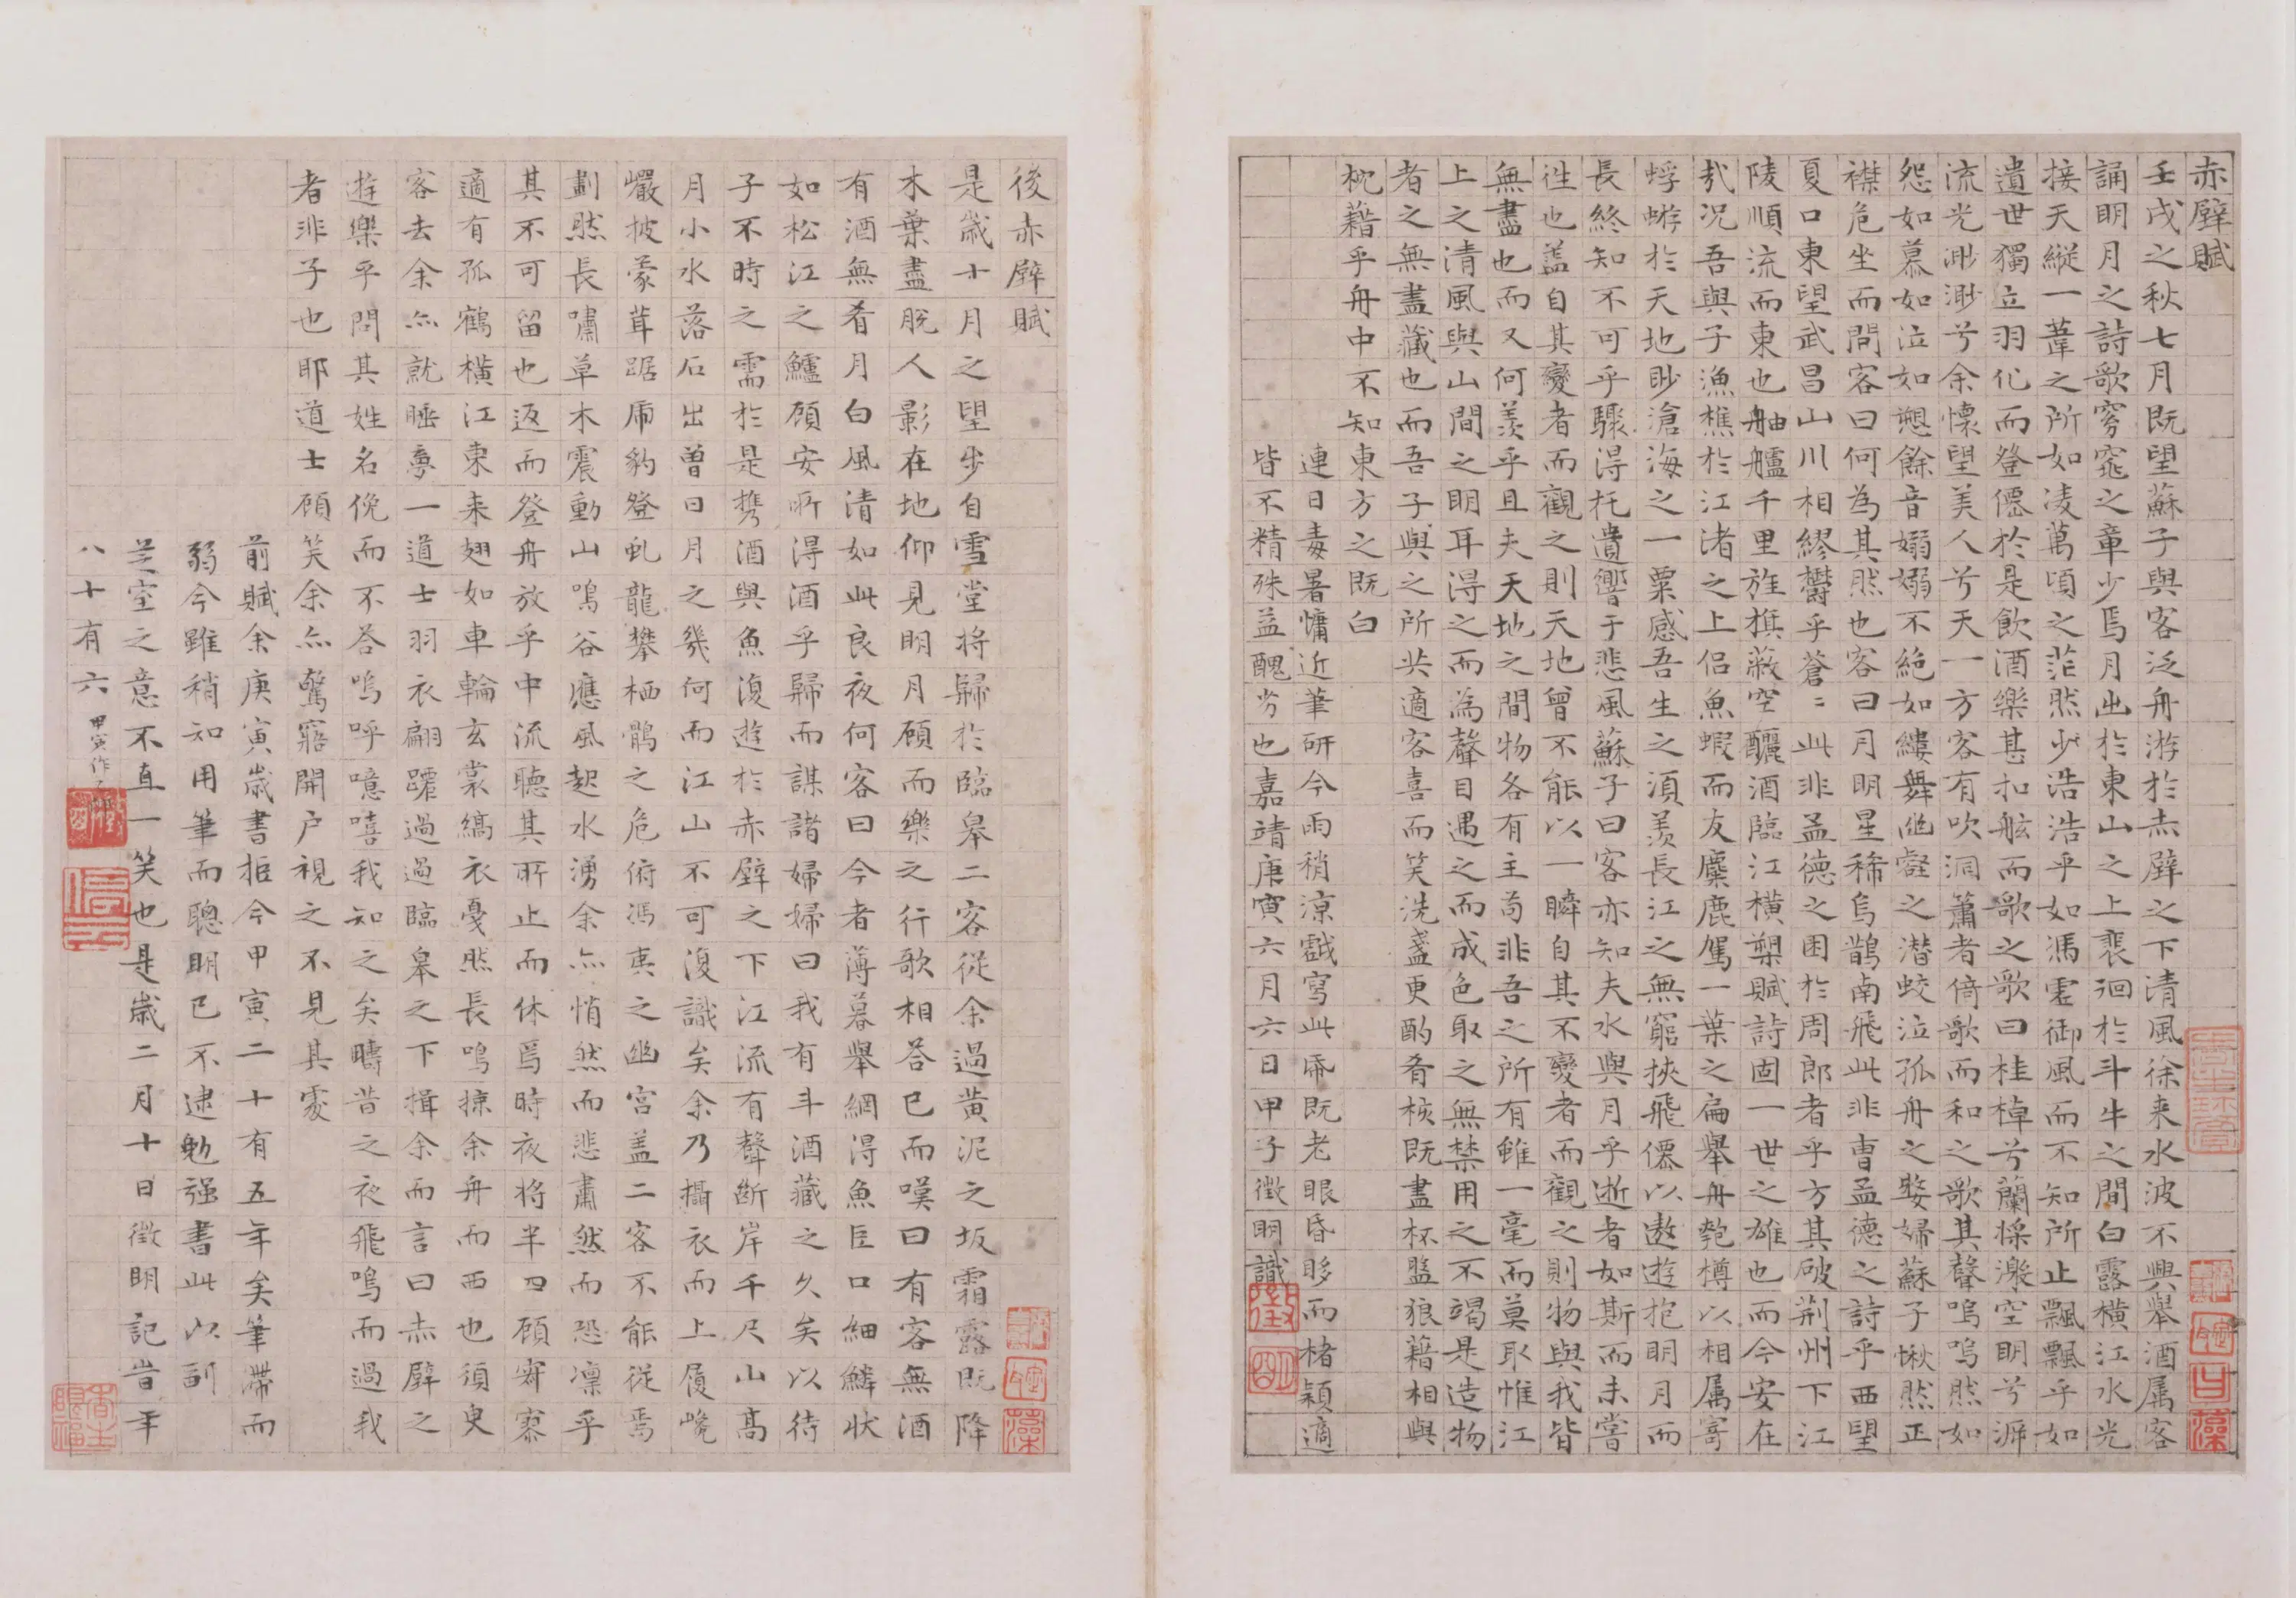 赤壁賦
壬戌之秋七月既望蘇子與客泛舟游於赤壁之下清風徐来水波不興舉酒属客
誦明月之詩歌窈窕之章少焉月出於東山之上裴洄於斗牛之間白露橫江水光
接天縱一葦之所如凌萬頃之茫然少浩浩乎如馮虛御風而不知所止飄飄乎如
遺世獨立羽化而登僊於是飲酒樂甚扣舷而歌之歌曰桂棹兮蘭槳激空明兮泝
流光渺渺兮余懷望美人兮天一方客有吹洞簫者倚歌而和之其聲嗚嗚然如
怨如慕如泣如愬餘音嫋嫋不絶如縷舞幽壑之潜蛟泣孤舟之嫠婦蘇子愀然正
襟危坐而問客曰何為其然也客曰月明星稀烏鵲南飛此非曹孟德之詩乎西望
夏口東望武昌山川相繆欝乎蒼〻此非孟德之困於周郎者乎方其破荆州下江
陵順流而東也舳艫千里旌旗蔽空釃酒臨江橫槊賦詩固一世之雄也而今安在
㢤况吾與子漁樵於江渚之上侣魚蝦而友麋鹿駕一葉之扁舉舟匏樽以相属寄
蜉蝣於天地眇滄海之一粟感吾生之湏羨長江之無窮挾飛僊以遨遊抱明月而
長終知不可乎驟淂托遺響于悲風蘇子曰客亦知夫水與月乎逝者如斯而未嘗
徃也盖自其變者而觀之則天地曾不能以一瞬自其不變者而觀之則物與我皆
無盡也而又何羨乎且夫天地之間物各有主苟非吾之所有雖一毫而莫取惟江
上之清風與山間之明耳淂之而為聲目遇之而成色取之無禁用之不竭是造物
者之無盡藏也而吾子與之所共適客喜而笑洗盞更酌肴核既盡杯盤狼藉相與
枕藉乎舟中不知東方之既白
連日毒暑慵近筆研今雨稍涼戲寫此冊既老眼昏眵而楮穎適
皆不精殊益醜劣也嘉靖庚寅六月六日甲子徵明識
徵明
後赤壁賦
是歲十月之望步自雪堂将歸於臨皋二客從余過黄泥之坂霜露既降
木葉盡脫人影在地仰見明月顧而樂之行歌相荅已而嘆曰有客無酒
有酒無肴月白風清如此良夜何客曰今者薄暮舉網淂魚巨口細鱗狀
如松江之鱸顧安所淂酒乎歸而謀諸婦婦曰我有斗酒藏之久矣以待
子不時之需於是携酒與魚復遊於赤壁之下江流有聲斷岸千尺山高
月小水落石出曾日月之幾何而江山不可復識矣余乃攝衣而上履巉
巖披蒙茸踞虎豹登虬龍攀栖鶻之危俯馮夷之幽宮盖二客不能從焉
劃然長嘯草木震動山鳴谷應風起水湧余亦悄然而悲肅然而恐凛乎
其不可留也返而登舟放乎中流聽其所止而休焉時夜将半四顧寂寥
適有孤鶴橫江東来翅如車輪玄裳縞衣戛然長鳴掠余舟而西也須臾
客去余亦就睡夢一道士羽衣翩躚過過臨皋之下揖余而言曰赤壁之
遊樂乎問其姓名俛而不荅嗚呼噫嘻我知之矣疇昔之夜飛鳴而過我
者非子也耶道士顧笑余亦驚寤開户視之不見其處
前賦余庚寅歲書拒今甲寅二十有五年矣筆滯而
弱今雖稍知用筆而聰明已不逮勉强書此以副
芝室之意不直一笑也是歲二月十日徵明記旹年
八十有六